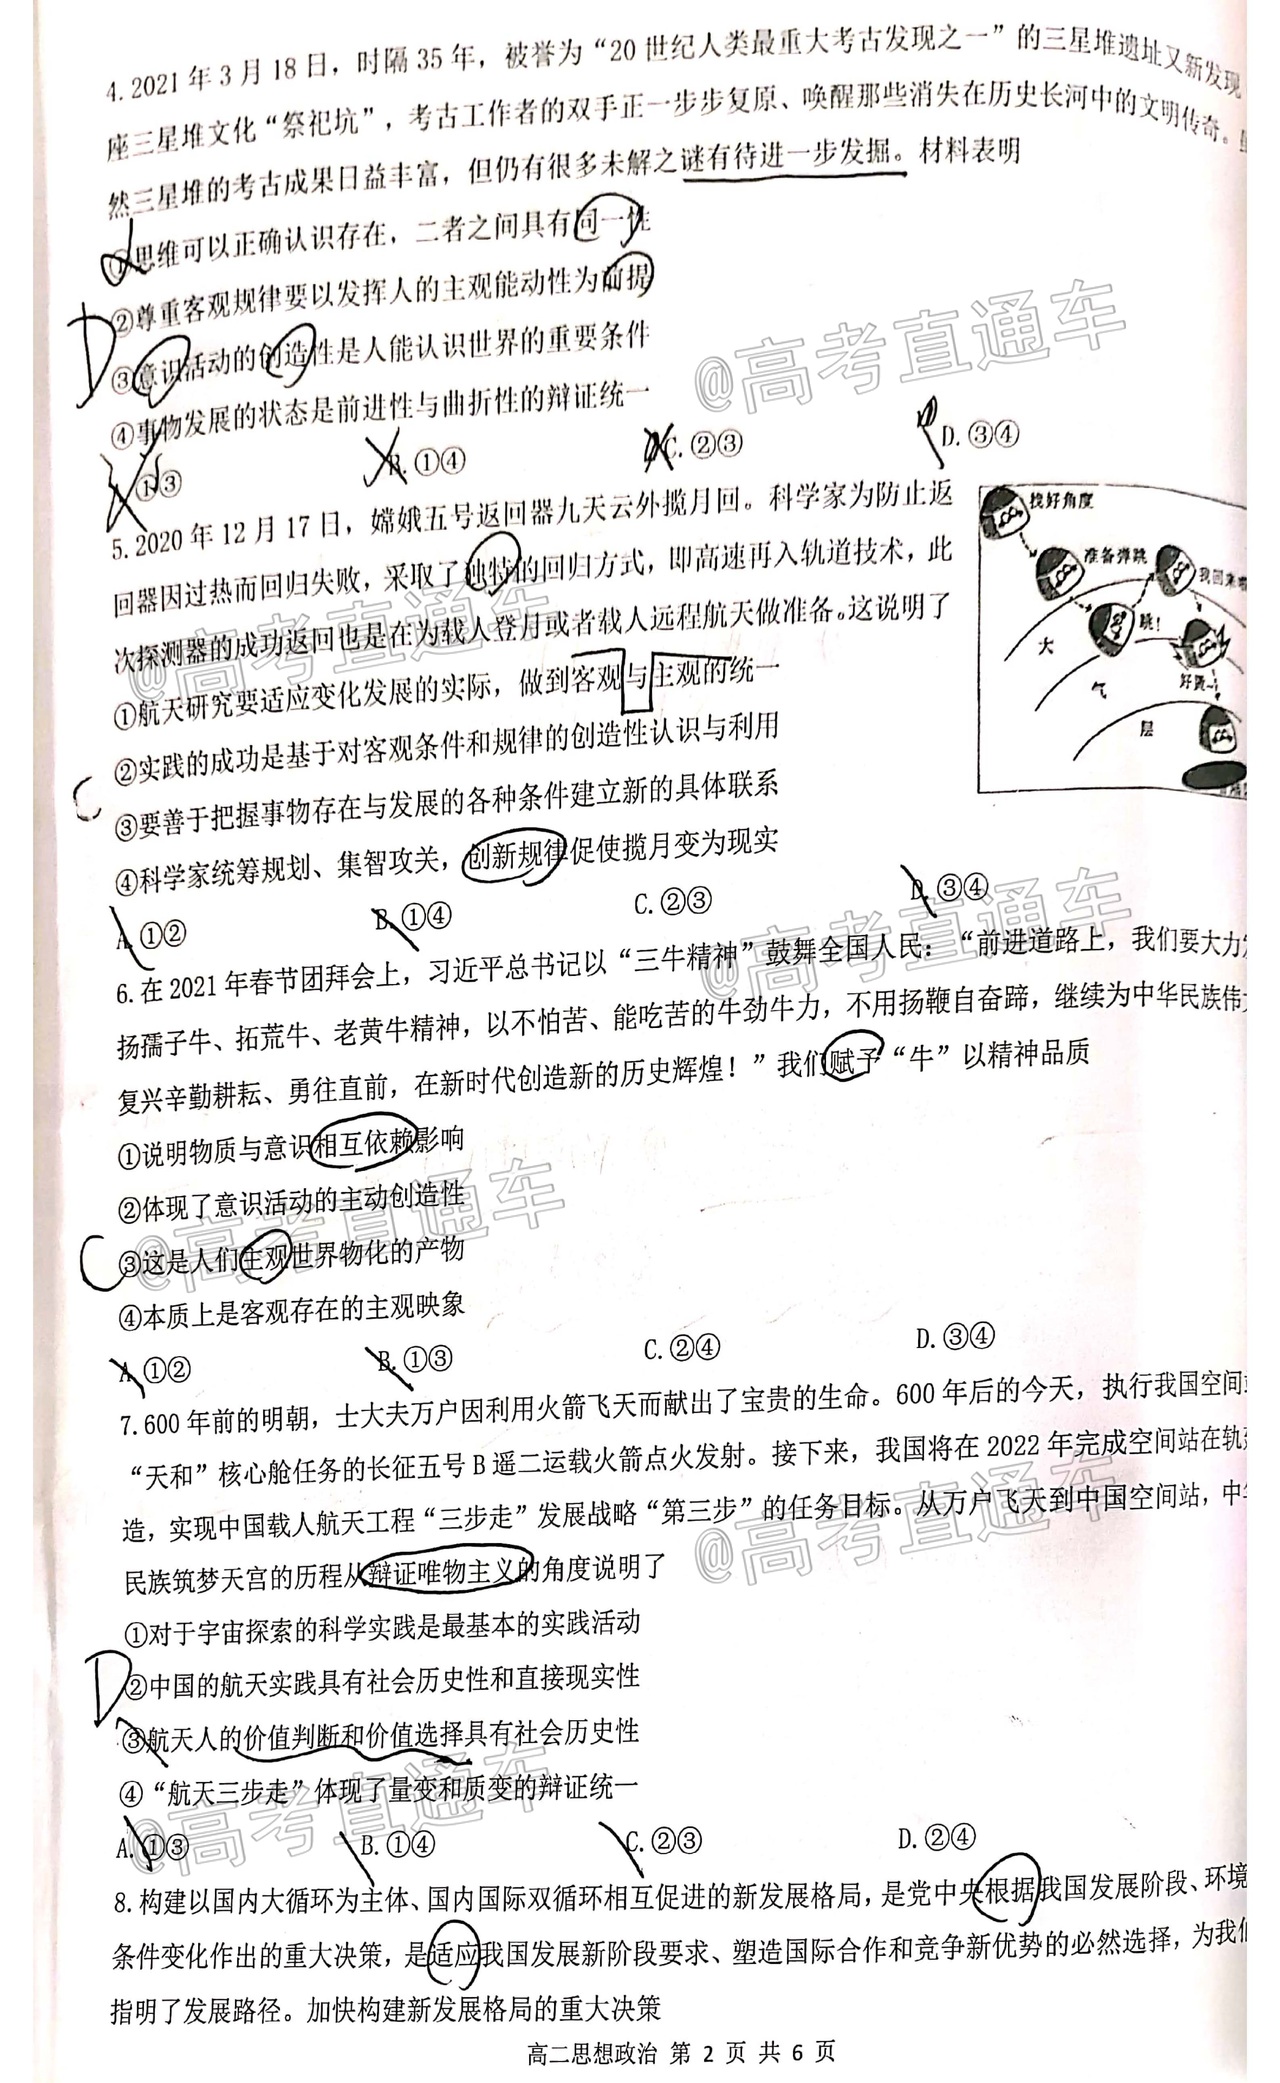 4.2021年3月18日，时隔35年，被誉为“20世纪人类最重大考古发现之一”的三星堆遗址又新发现
座三星堆文化“祭祀坑”，考古工作者的双手正一步步复原、唤醒那些消失在历史长河中的文明传奇。
然三星堆的考古成果日益丰富，但仍有很多未解之谜有待进一步发掘。材料表明
①思维可以正确认识存在，二者之间具有同一性
②尊重客观规律要以发挥人的主观能动性为前提
D
③意识活动的创造性是人能认识世界的重要条件
④事物发展的状态是前进性与曲折性的辩证统一
①③ B.①④ C.②③ D.③④
5.2020年12月17日，嫦娥五号返回器九天云外揽月回。科学家为防止返
回器因过热而回归失败，采取了独特的回归方式，即高速再入轨道技术，此
次探测器的成功返回也是在为载人登月或者载人远程航天做准备。这说明了
①航天研究要适应变化发展的实际，做到客观与主观的统一
②实践的成功是基于对客观条件和规律的创造性认识与利用
C
③要善于把握事物存在与发展的各种条件建立新的具体联系
④科学家统筹规划、集智攻关，创新规律促使揽月变为现实
A.①② B.①④ C.②③ D.③④
找好角度
准备弹跳
我回来
跳！
大
气
层
好
6.在2021年春节团拜会上，习近平总书记以“三牛精神”鼓舞全国人民：“前进道路上，我们要大力
扬孺子牛、拓荒牛、老黄牛精神，以不怕苦、能吃苦的牛劲牛力，不用扬鞭自奋蹄，继续为中华民族伟
复兴辛勤耕耘、勇往直前，在新时代创造新的历史辉煌！”我们赋予“牛”以精神品质
①说明物质与意识相互依赖影响
②体现了意识活动的主动创造性
C
③这是人们主观世界物化的产物
④本质上是客观存在的主观映象
A.①② B.①③ C.②④ D.③④
7.600年前的明朝，士大夫万户因利用火箭飞天而献出了宝贵的生命。600年后的今天，执行我国空间
“天和”核心舱任务的长征五号B遥二运载火箭点火发射。接下来，我国将在2022年完成空间站在轨
造，实现中国载人航天工程“三步走”发展战略“第三步”的任务目标。从万户飞天到中国空间站，中
民族筑梦天宫的历程从辩证唯物主义的角度说明了
①对于宇宙探索的科学实践是最基本的实践活动
D
②中国的航天实践具有社会历史性和直接现实性
③航天人的价值判断和价值选择具有社会历史性
④“航天三步走”体现了量变和质变的辩证统一
A.①③ B.①④ C.②③ D.②④
8.构建以国内大循环为主体、国内国际双循环相互促进的新发展格局，是党中央根据我国发展阶段、环境
条件变化作出的重大决策，是适应我国发展新阶段要求、塑造国际合作和竞争新优势的必然选择，为我们
指明了发展路径。加快构建新发展格局的重大决策
高二思想政治 第 2 页 共 6 页
@高考直通车
@高考直通车
@高考直通车
@高考直通车
@高考直通车
@高考直通车